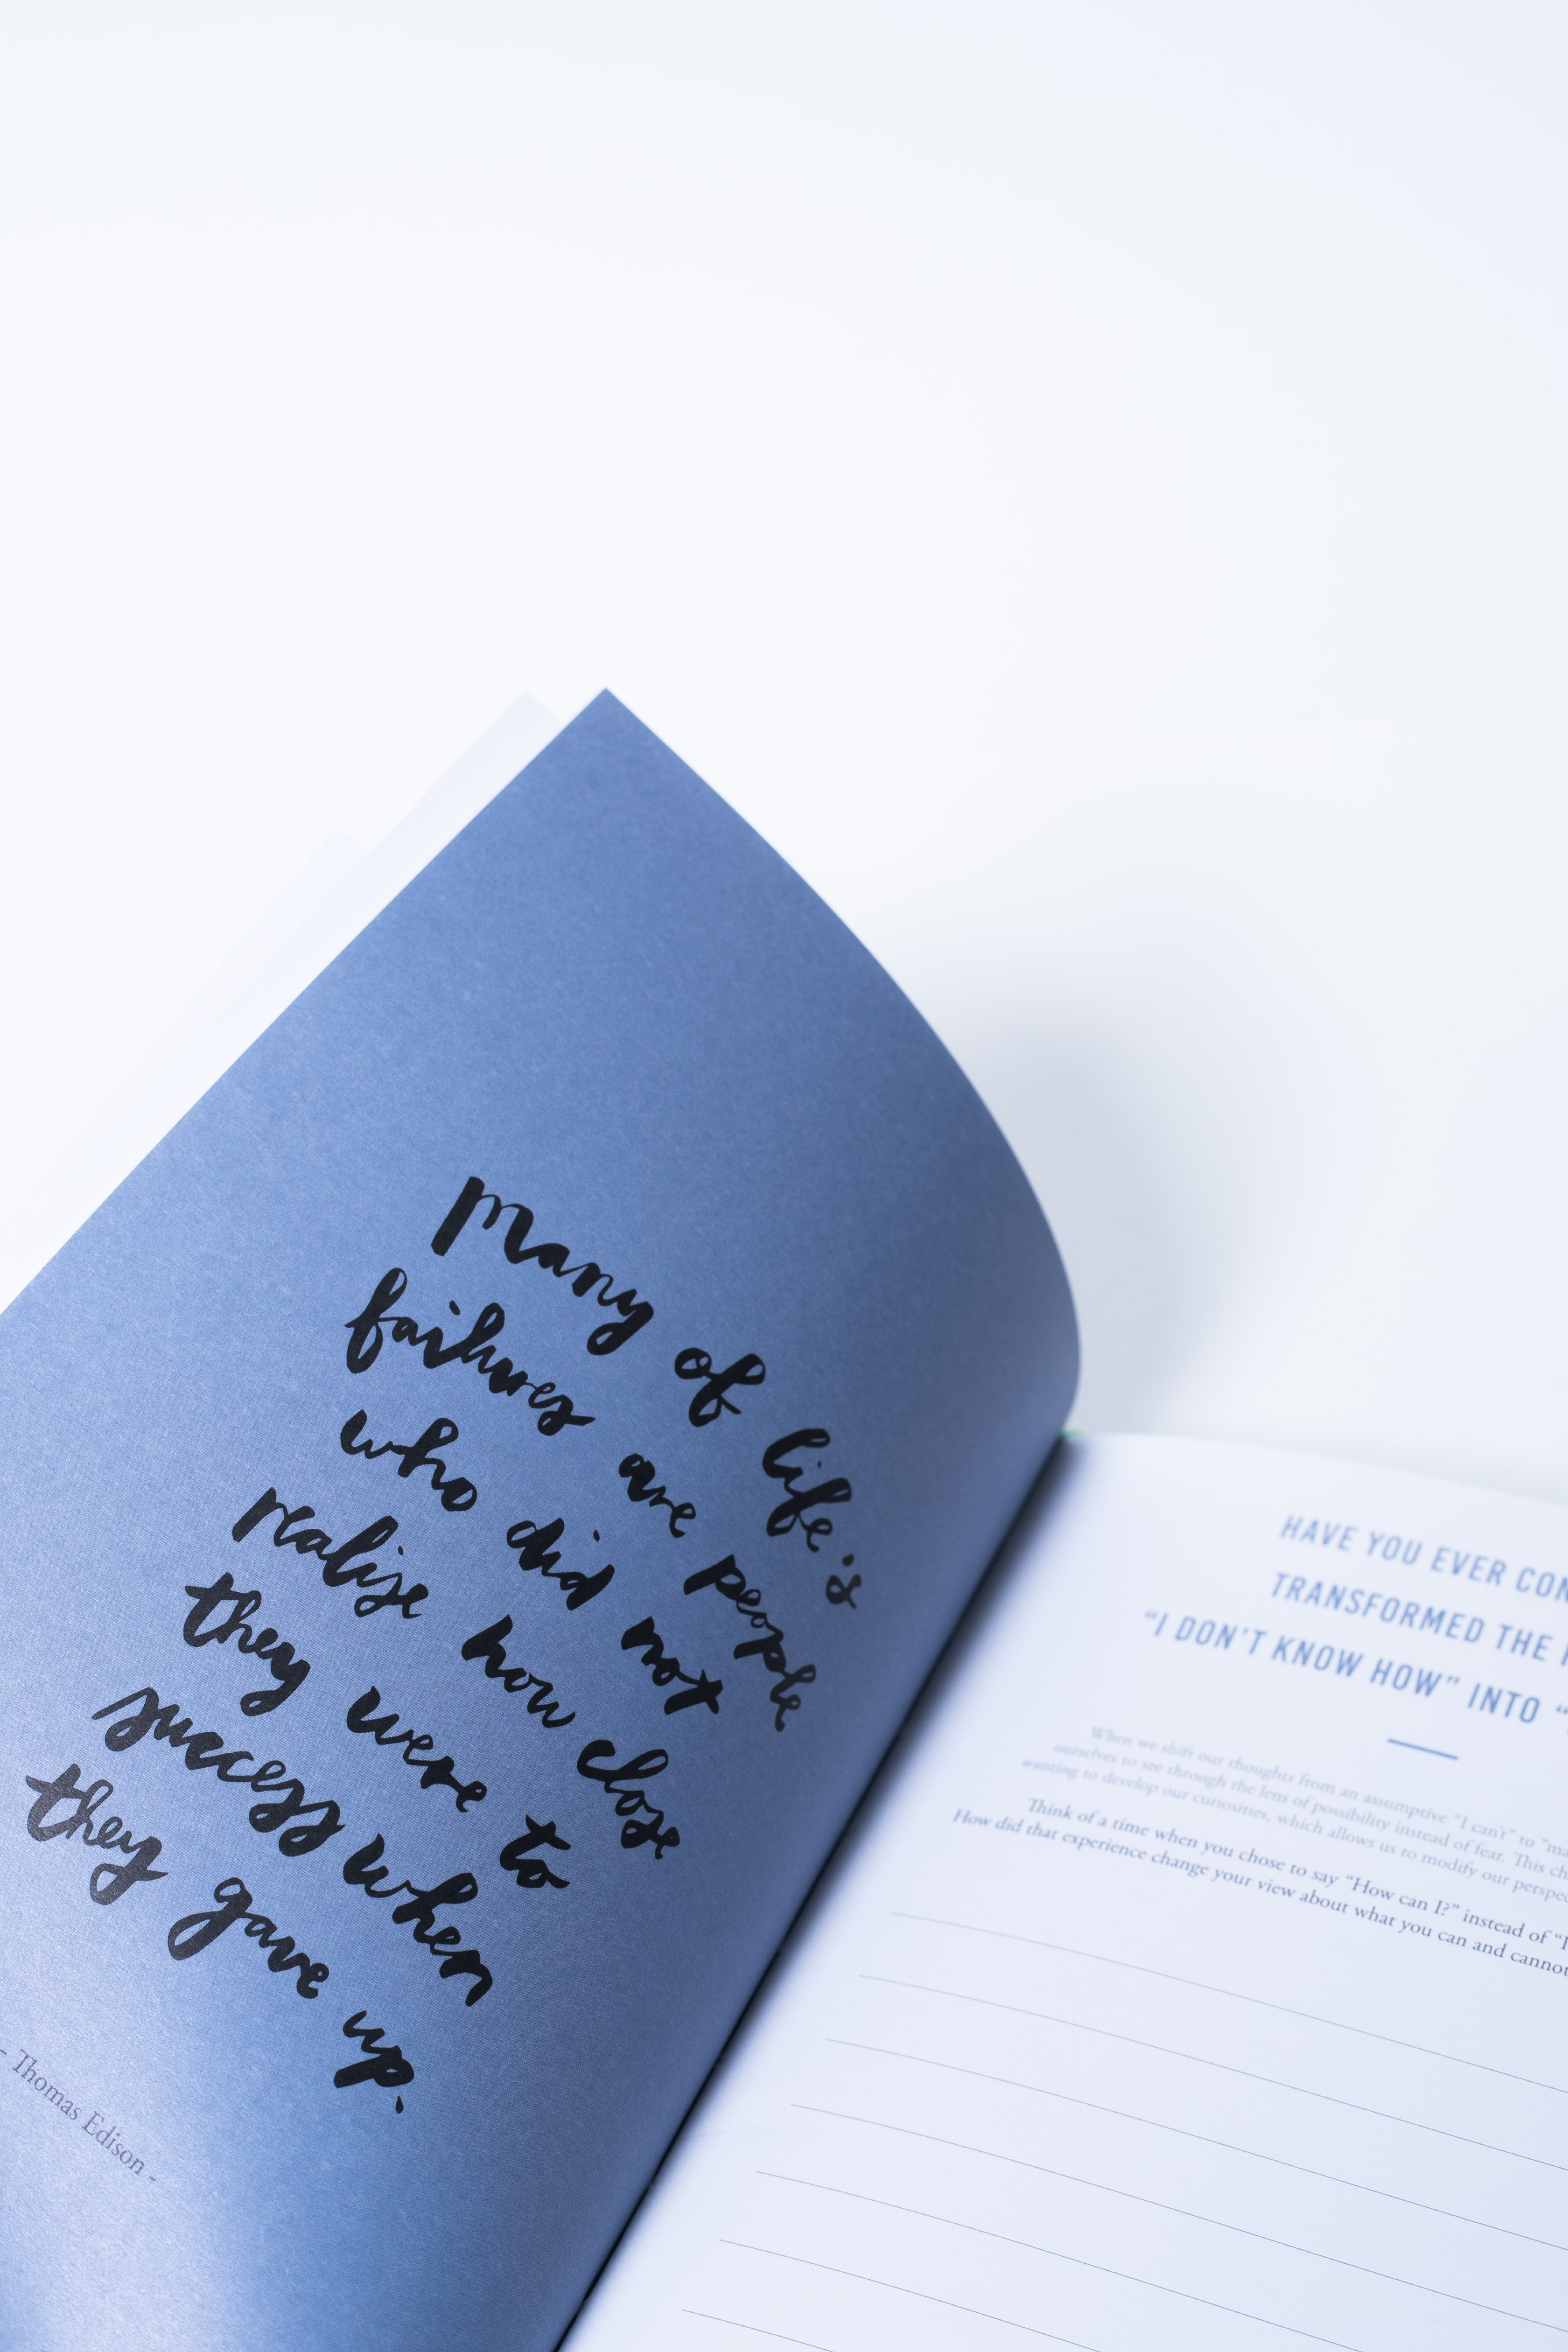 Many of life's
failures are people
who did not
realise how close
they were to
success when
they gave up.
- Thomas Edison -
HAVE YOU EVER CON
TRANSFORMED THE
“I DON’T KNOW HOW” INTO “
When we shift our thoughts from an assumptive “I can’t” to “ma
ourselves to see through the lens of possibility instead of fear. This ch
wanting to develop our curiosities, which allows us to modify our perspec
Think of a time when you chose to say “How can I?” instead of “I
How did that experience change your view about what you can and cannot